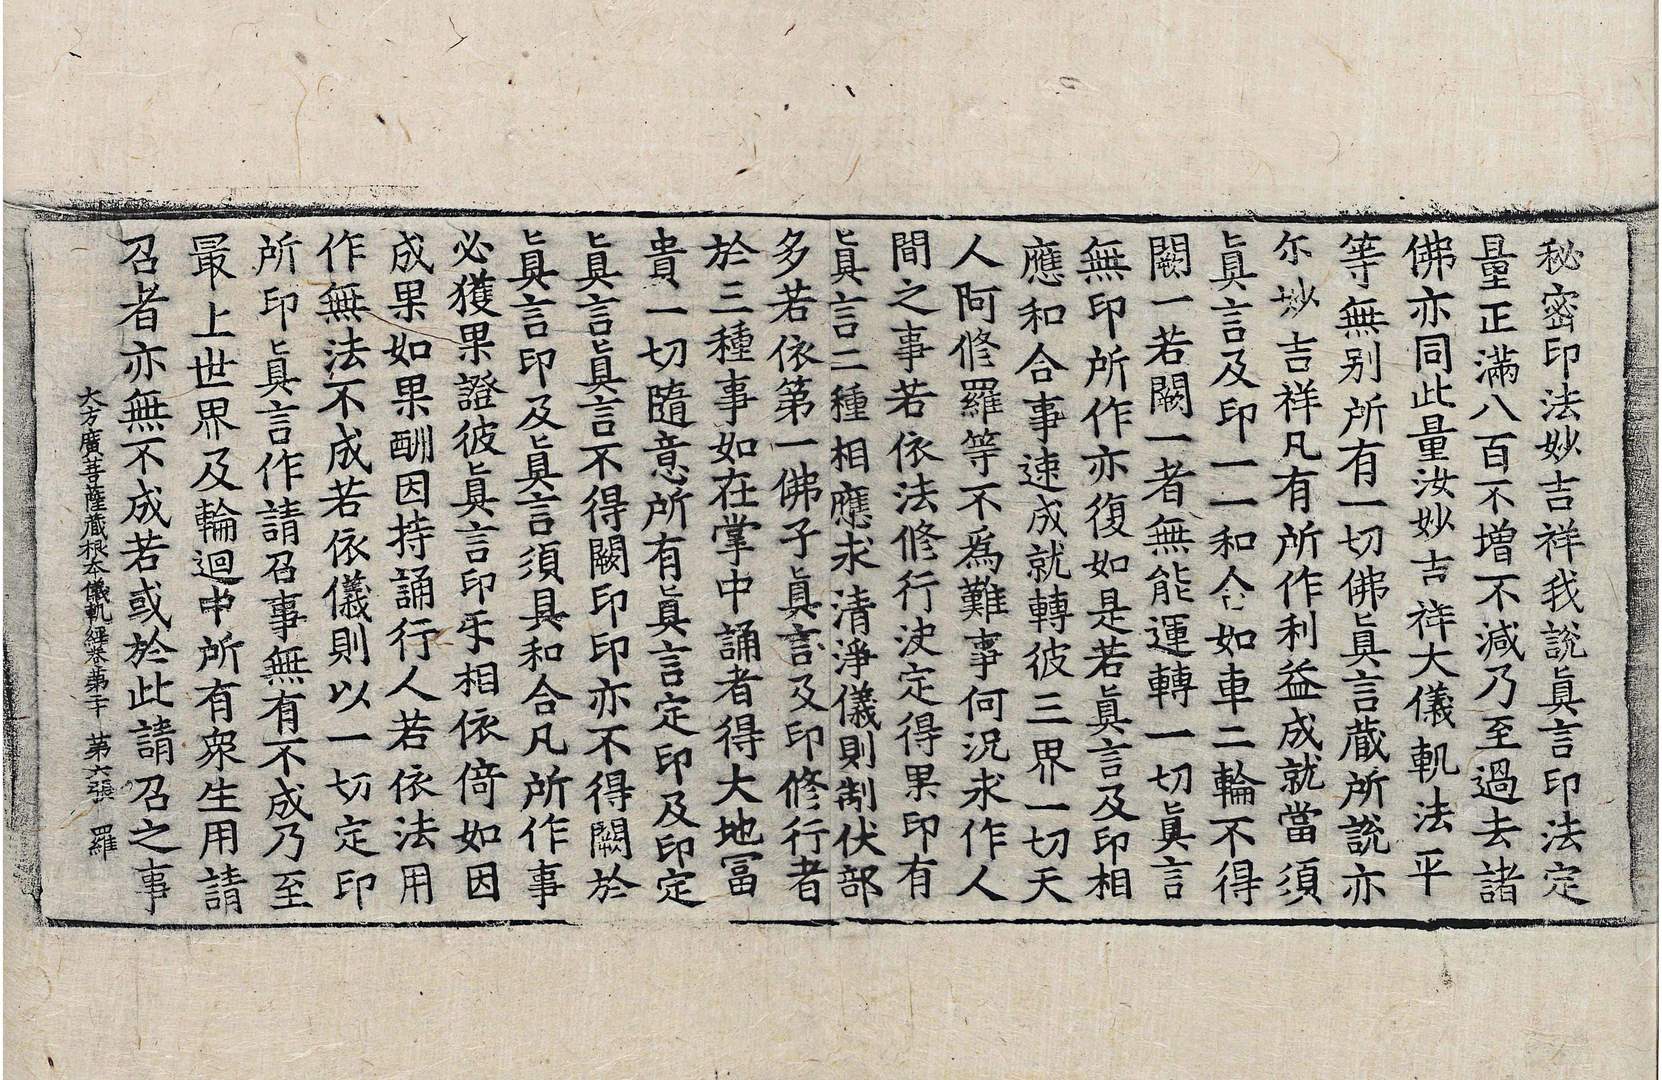 秘密印法妙吉祥我說眞言印法定
量正滿八百不增不減乃至過去諸
佛亦同此量汝妙吉祥大儀軌法平
等無别所有一切佛眞言藏所說亦
尓妙吉祥凡有所作利益成就當須
眞言及印一一和合如車二輪不得
闕一若闕一者無能運轉一切眞言
無印所作亦復如是若眞言及印相
應和合事速成就轉彼三界一切天
人阿修羅等不爲難事何況求作人
間之事若依法修行决定得果印有
眞言二種相應求清淨儀則制伏部
多若依第一佛子眞言及印修行者
於三種事如在掌中誦者得大地冨
貴一切隨意所有眞言定印及印定
眞言眞言不得闕印印亦不得闕於
眞言印及眞言須具和合凡所作事
必獲果證彼眞言印乐相依倚如因
成果如果酬因持誦行人若依法用
作無法不成若依儀則以一切定印
所印眞言作請召事無有不成乃至
最上世界及輪迴中所有衆生用請
召者亦無不成若或於此請召之事
大方廣菩薩藏根本儀軌經卷第二十 第六張 羅